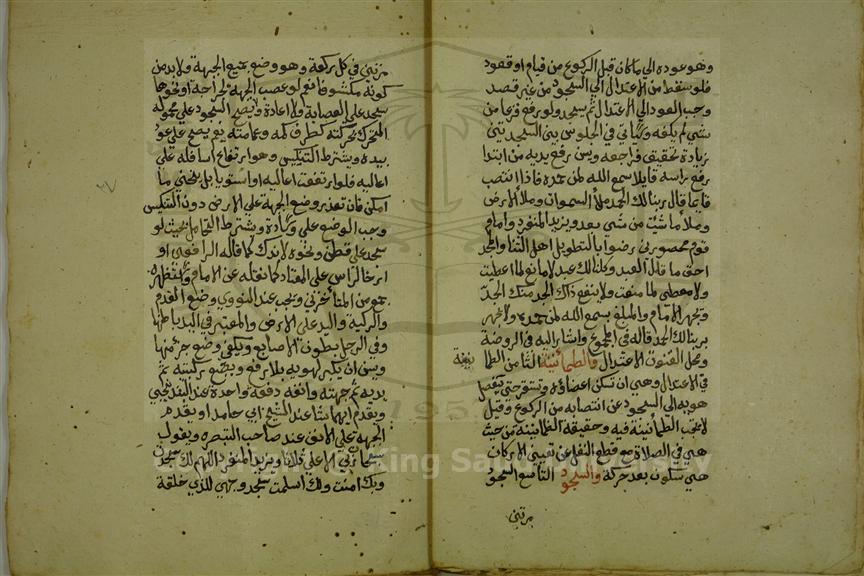 وهو عوده الي ما كان قبل الركوع من قيام او قعود
فلو سقط من الاعتدال الي السجود من غير قصد
وجب العود الي الاعتدال ثم يسجد ولو رفع فزعا من
شي لم يكفه وياتي في الجلوس بين السجدتين
زيادة تحقيق فراجعه ويسن رفع يديه من ابتدا
رفع راسه قايلا سمع الله لمن حمده فاذا انتصب
قايما قال ربنا لك الحمد ملأ السموات وملأ الارض
وملأ ما شيت من شي بعد ويزيد المنفرد وامام
قوم محصورين رضوا بالتطويل اهل الثنا والمجد
احق ما قال العبد وكلنا لك عبد لا مانع لما اعطيت
ولا معطي لما منعت ولا ينفع ذا الجد منك الجد
ويجهر الامام والمبلغ بسمع الله لمن حمده ولا يجهر
بربنا لك الحمد قاله في المجموع واشار اليه في الروضة
ومحل القنوت الاعتدال والطمأنينة الثامن الطما
نينة
في الاعتدال وهي ان تسكن اعضاؤه وتستقر حتي ينفصل
هويه الي السجود عن انتصابه من الركوع وقيل
لا تجب الطمأنينة فيه وحقيقة الطمانينة من حيث
هي في الصلاة مع قطع النظر عن تعيين الاركان
هي سكون بعد حركة والسجود التاسع السجود
مرتين
مرتين في كل ركعة وهو وضع جميع الجبهة ولا بد من
كونه مكشوفا فلو عصب الجبهة لجراحة او نحوها
سجد علي العصابة ولا اعادة ولا يصح السجود علي محموله
المتحرك بحركته كطرف كمه وعمامته نعم يصح علي عود
بيده ويشترط التنكيس وهو ارتفاع اسافله علي
اعاليه فلو ارتفعت اعاليه او استويا بل ينحني ما
امكن فان تعذر وضع الجبهة علي الارض دون التنكيس
وجب الوضع علي وسادة ويشترط التحامل بحيث لو
سجد علي قطن ونحوه لاندك كما قاله الرافعي او
ارخا الراس علي المعتاد كما نقله عن الامام واستظهره
جمع من المتأخرين ويجب عند النووي وضع القدم
والركبة واليد علي الارض والمعتبر في اليد باطنها
وفي الرجل بطون الاصابع ويكفي وضع جزء منها
ويسن ان يكبر لهويه بلا رفع ويضع ركبتيه ثم
يديه ثم جبهته وانفه دفعة واحدة عند البندنيجي
ويقدم ايهما شا عند الشيخ ابي حامد او يقدم
الجبهة علي الانف عند صاحب التبصرة ويقول
سبحان ربي الاعلي ثلاثا ويزيد المنفرد اللهم لك سجدت
وبك امنت ولك اسلمت سجد وجهي للذي خلقه
King Saud University
1957